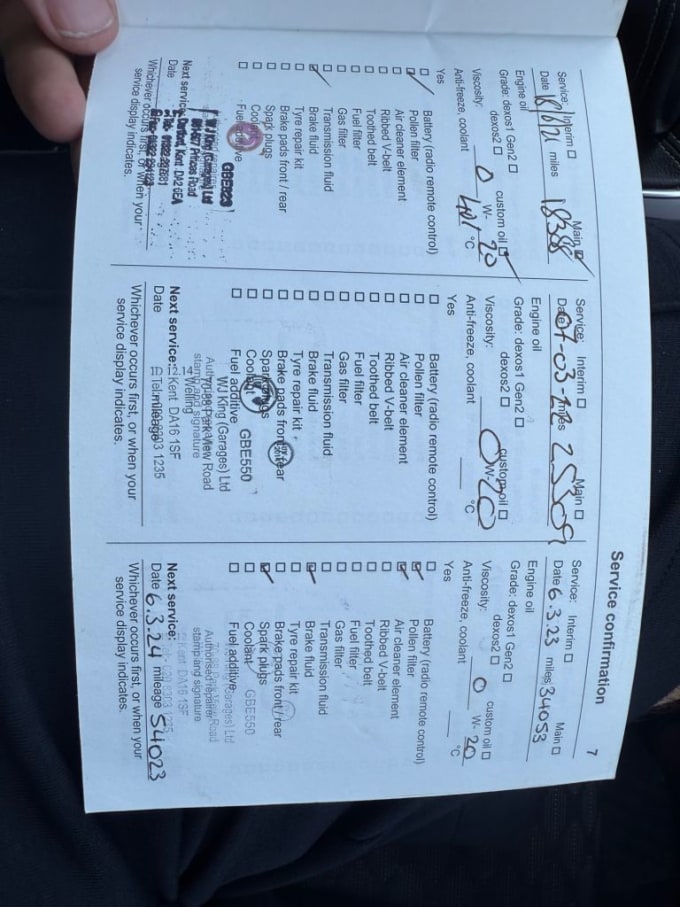 7
Service confirmation
Service: Interim □ Main
Date miles 18388
Engine oil
Grade: dexos1 Gen2 □
dexos2 □ custom oil
Viscosity: 0 W- 20
Anti-freeze, coolant °C
Yes
Battery (radio remote control)
Pollen filter
Air cleaner element
Ribbed V-belt
Toothed belt
Fuel filter
Gas filter
Transmission fluid
Brake fluid
Tyre repair kit
Brake pads front / rear
Spark plugs
Coolant
Fuel additive
GBE523
WJ King (Garages) Ltd
Princes Road
Dartford, Kent DA2 6EA
Next service:
Date
Whichever occurs first, or when your
service display indicates.
Service: Interim □ Main □
Date 07-03-22 miles 25309
Engine oil
Grade: dexos1 Gen2 □
dexos2 □ custom oil □
Viscosity: 0 W- 20
Anti-freeze, coolant °C
Yes
Battery (radio remote control)
Pollen filter
Air cleaner element
Ribbed V-belt
Toothed belt
Fuel filter
Gas filter
Transmission fluid
Brake fluid
Tyre repair kit
Brake pads front / rear
Spark plugs
Coolant
Fuel additive
GBE550
WJ King (Garages) Ltd
70-86 Park View Road
Welling
Kent DA16 1SF
stamp and signature
Next service:
Date mileage
Whichever occurs first, or when your
service display indicates.
Service: Interim □ Main □
Date 6.3.23 miles 34053
Engine oil
Grade: dexos1 Gen2 □
dexos2 □ custom oil □
Viscosity: 0 W- 20
Anti-freeze, coolant °C
Yes
Battery (radio remote control)
Pollen filter
Air cleaner element
Ribbed V-belt
Toothed belt
Fuel filter
Gas filter
Transmission fluid
Brake fluid
Tyre repair kit
Brake pads front / rear
Spark plugs
Coolant
Fuel additive
GBE550
(Garages) Ltd
Park View Road
Kent DA16 1SF
Authorised repairer
stamp and signature
Next service:
Date 6.3.24 mileage 54023
Whichever occurs first, or when your
service display indicates.